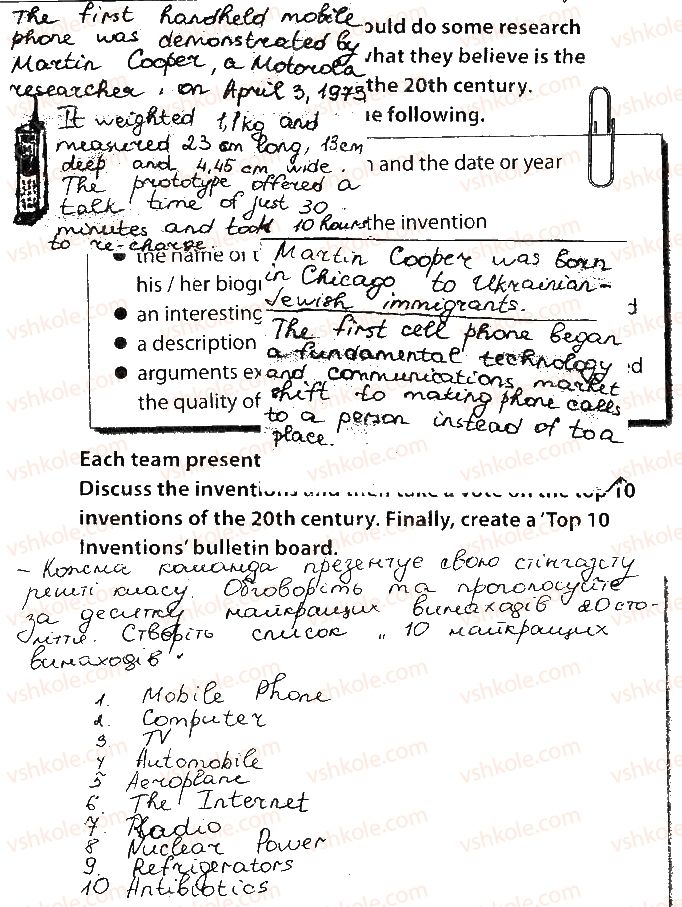 The first handheld mobile
phone was demonstrated by
Martin Cooper, a Motorola
researcher, on April 3, 1973
It weighted 1,1kg and
measured 23 cm long, 13cm
deep and 4,45 cm wide.
The prototype offered a
talk time of just 30
minutes and took 10 hours
to re-charge.
ould do some research
what they believe is the
the 20th century.
e following.
n and the date or year
the invention
the name of t
his / her biogr
an interesting
a description
arguments ex
the quality of
d
ed
Martin Cooper was born
in Chicago to Ukrainian-
Jewish immigrants.
The first cell phone began
a fundamental technology
and communications market
shift to making phone calls
to a person instead of to a
place.
Each team present
Discuss the inventions and then take a vote on the top 10
inventions of the 20th century. Finally, create a ‘Top 10
Inventions’ bulletin board.
- Кожна команда презентує свою стінгазету
решті класу. Обговоріть та проголосуйте
за десятку найкращих винаходів 20 сто-
ліття. Створіть список „ 10 найкращих
винаходів "
1. Mobile Phone
2. Computer
3 TV
4 Automobile
5 Aeroplane
6. The Internet
7. Radio
8 Nuclear Power
9. Refrigerators
10 Antibiotics
vshkole.com